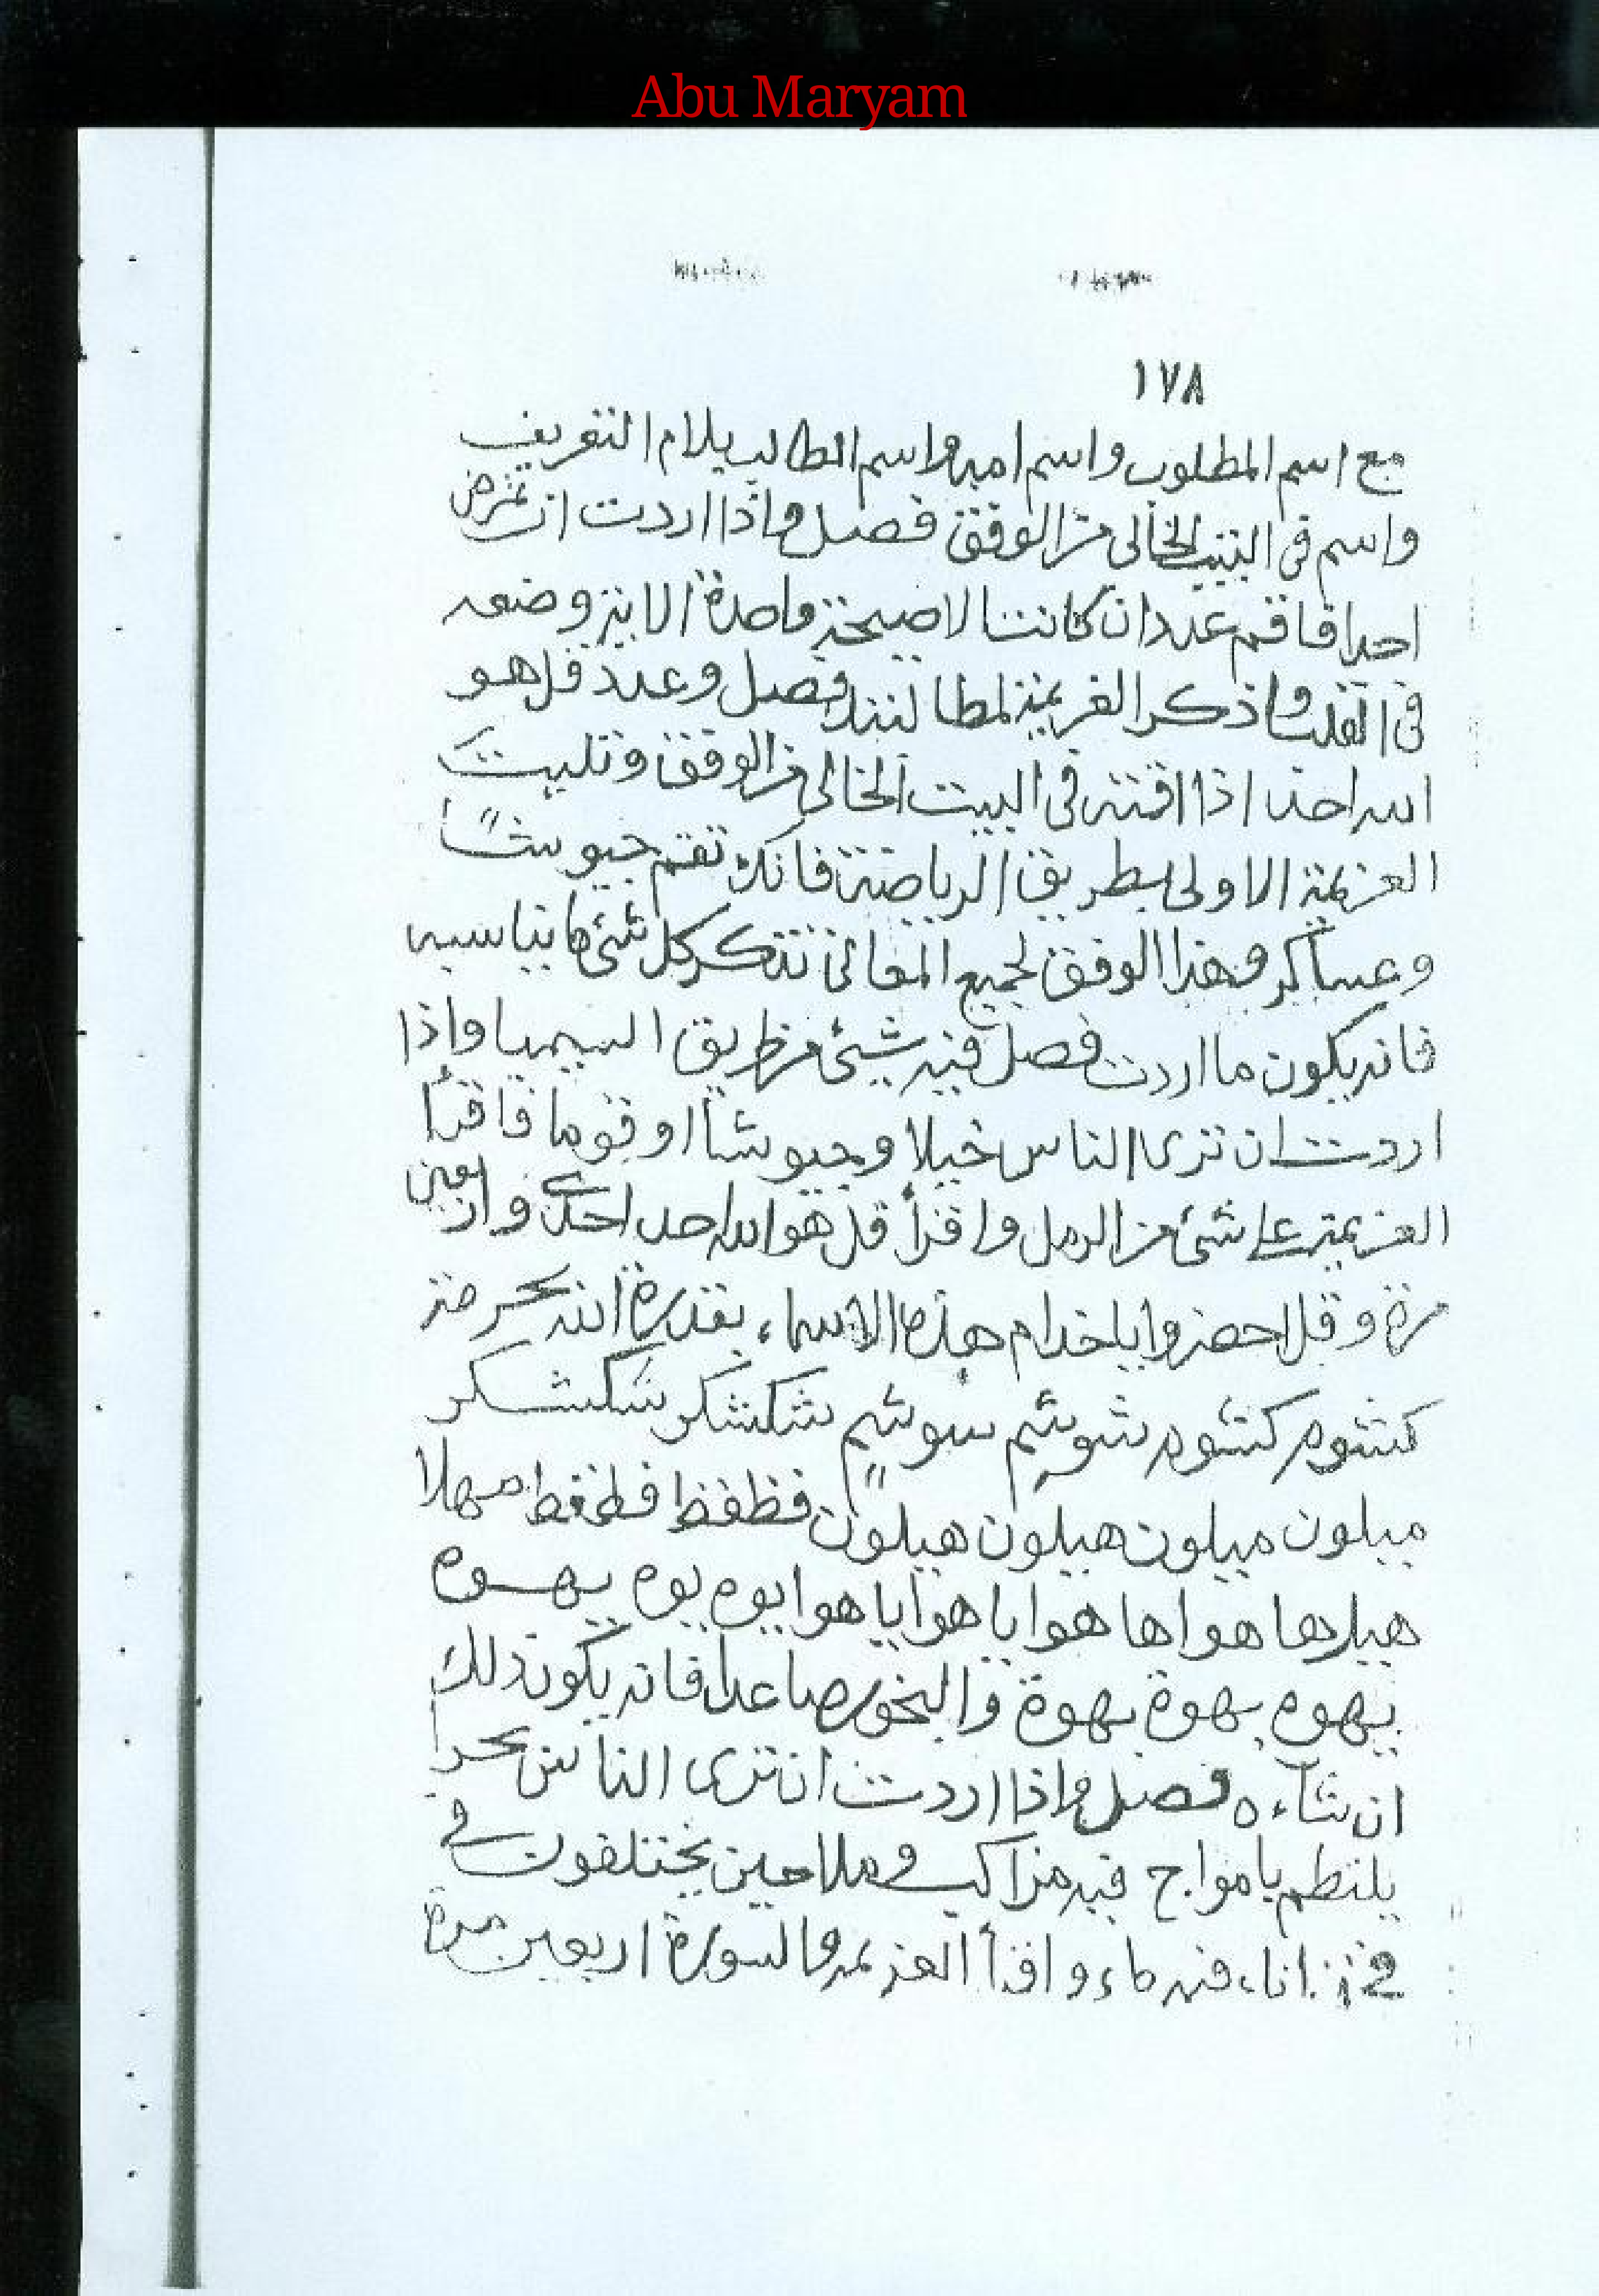 Abu Maryam
١٧٨
مع اسم المطلوب واسم امه واسم الطالب بلام التعريف
واسم في البيت الخالي من الوفق فصل واذا اردت ان تمرض
احدا فاقم عدد ان كانت الا صيحة واحدة الاية وضعه
في القلب واذكر العزيمة فصل وعدد قل هو
الله احد اذا اقته في البيت الخالي من الوفق وتليت
العزيمة الاولى بطريق الرياضة فانك تقم جيوشا
وعساكر وهذا الوفق لجميع المعاني تذكر كل شئ ما يناسبه
فانه يكون ما اردت فصل فيه شيئ من طريق السيميا واذا
اردت ان ترى الناس خيلا وجيوشا او قوما فاقرأ
العزيمة على شئ من الرمل واقرأ قل هو الله احد احدى واربعين
مرة وقل احضروا يا خدام هذه الاسماء بقدرة الله
كشوم كشوم شوشم سوشم شكشكر شكشكر
ميلون ميلون هيلون هيلون فظفظ فظفظ مهلا
هيلاها هواها هوايا هوايا هوا يوه يوه يهوه
يهوه يهوة يهوة والبخور صاعدا فانه يكون ذلك
ان شاء ه فصل واذا اردت ان ترى الناس بحرا
يلتطم بامواج فيه مراكب وملاحين يختلفون في
اناء فيه ماء واقرأ العزيمة والسورة اربعين مرة